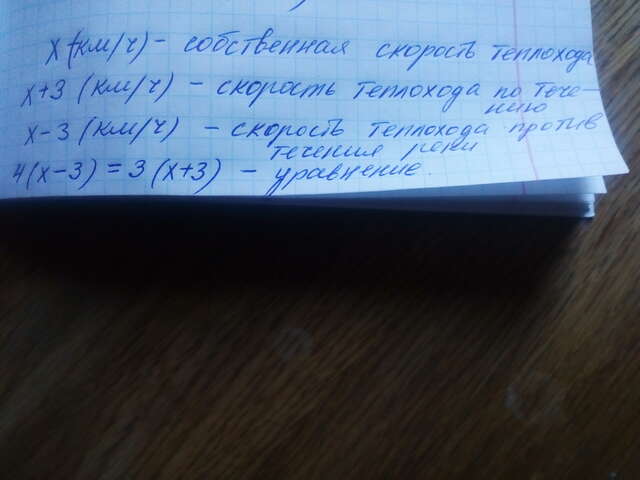 x (км/ч) - собственная скорость теплохода
x+3 (км/ч) - скорость теплохода по тече-
нию
x-3 (км/ч) - скорость теплохода против
течения реки
4(x-3) = 3(x+3) - уравнение.